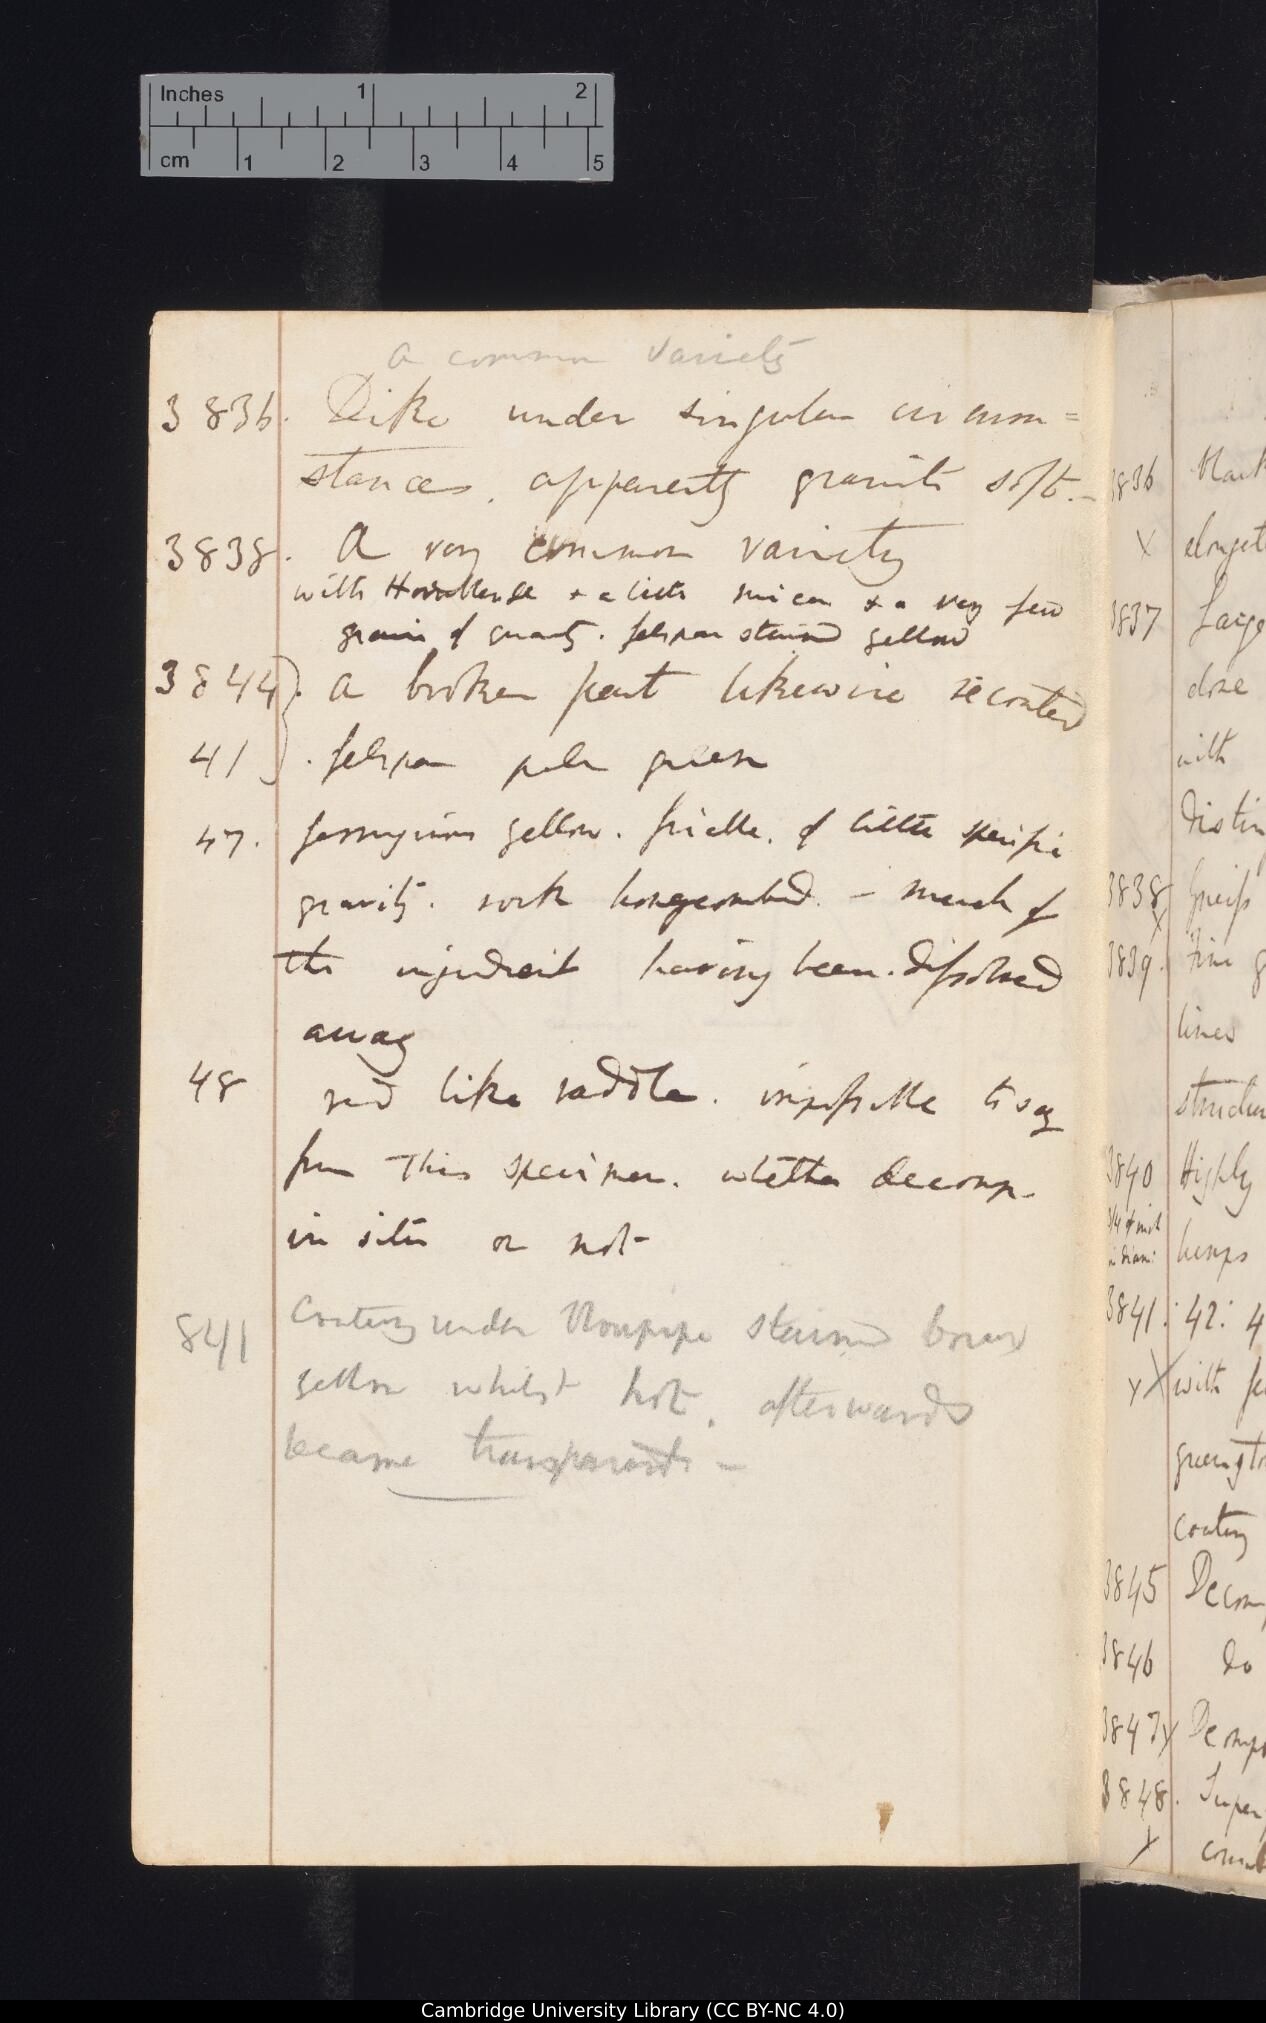 Inches 1 2
cm 1 2 3 4 5
a common variety
3836. Dike under singular circum=
stances. apparently granite soft.—
3838. A very common variety
with Hornblende & a little mica & a very few
grains of quartz. felspar stained yellow
3844). A broken part likewise recoated
41). felspar pale green
47. ferruginous yellow. friable. of little specific
gravity. rock honeycombed. — much of
the ingredient having been dissolved
away
48 red like raddle. impossible to say
from this specimen. whether decomp.
in situ or not
841 Coating under Blowpipe stained borax
yellow whilst hot. afterwards
became transparent. —
3836 black
X elongat
3837 Large
done
with
distin
3838 Gneiss
X
3839. Fine g
lines
structur
3840 Highly
3/4 of inch
in diam: lumps
3841: 42: 4
y X with fe
green
coating
3845 Decom
3846 do
3847 y Decompo
3848. Super
X
Cambridge University Library (CC BY-NC 4.0)